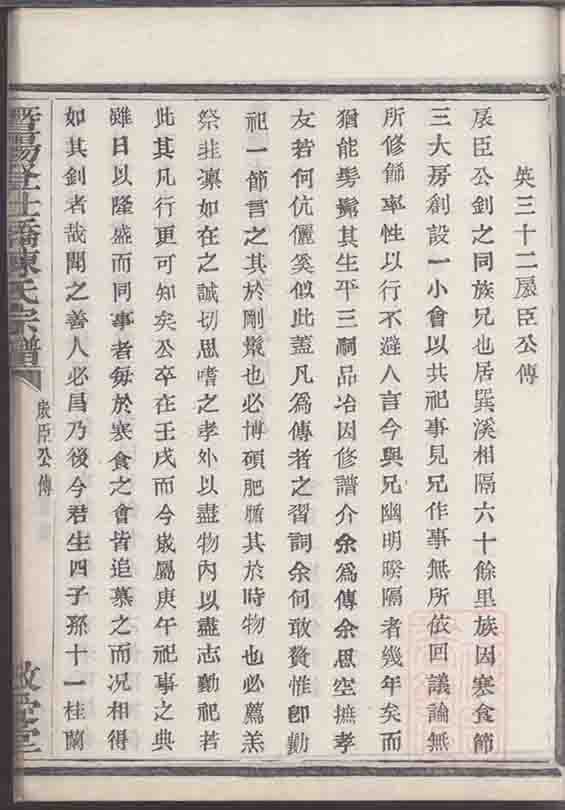 英三十二扆臣公傳
扆臣公釗之同族兄也居巽溪相隔六十餘里族因寒食節
三大房創設一小會以共祀事見兄作事無所依回議論無
所修飾率性以行不避人言今與兄幽明暌隔者幾年矣而
猶能髣髴其生平三嗣品冶因修譜介余爲傳余思空摭孝
友若何伉儷奚似此蓋凡爲傳者之習詞余何敢贅惟卽勤
祀一節言之其於剛鬛也必博碩肥腯其於時物也必薦羔
祭韭凛如在之誠切思嗜之孝外以盡物內以盡志勤祀若
此其凡行更可知矣公卒在壬戌而今歲屬庚午祀事之典
雖日以隆盛而同事者每於寒食之會皆追慕之而况相得
如其釗者哉聞之善人必昌乃後今君生四子孫十一桂蘭
暨陽 陳氏宗譜
扆臣公傳